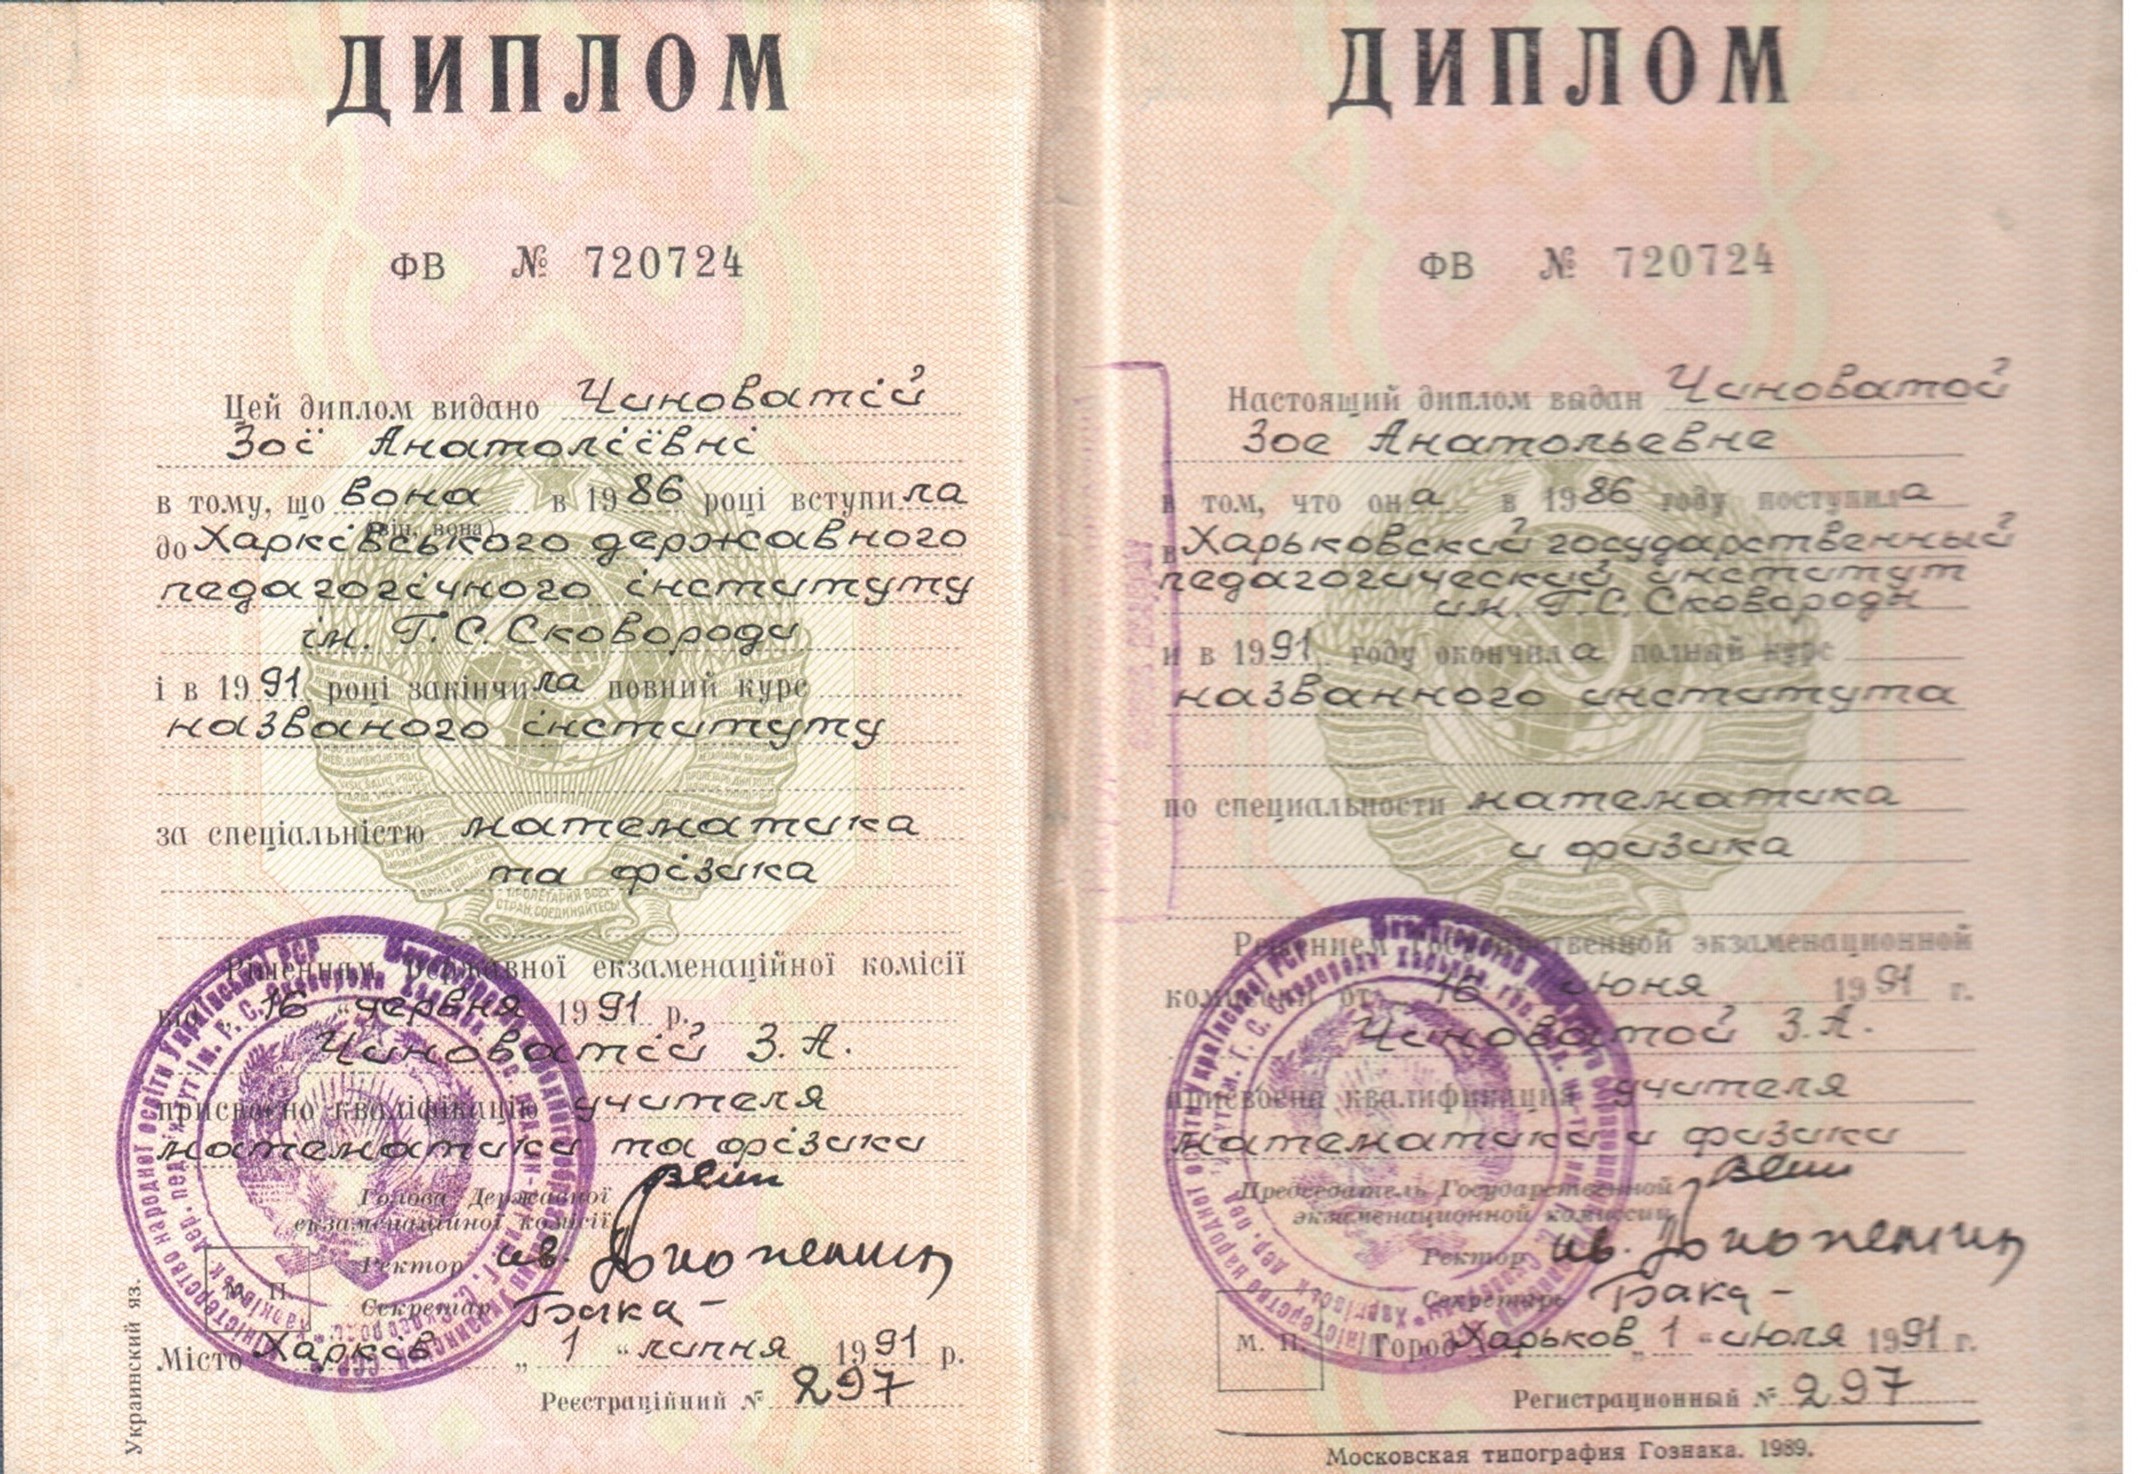 ДИПЛОМ
ФВ № 720724
Цей диплом видано Чиноватій
Зої Анатоліївні
в тому, що вона в 1986 році вступила
(він, вона)
до Харківського державного
педагогічного інституту
ім. Г.С. Сковороди
і в 1991 році закінчила повний курс
названого інституту
за спеціальністю математика
та фізика
Рішенням Державної екзаменаційної комісії
від 16 „червня 1991 р.
Чиноватій З.А.
присвоєно кваліфікацію учителя
математики та фізики
Голова Державної
екзаменаційної комісії
Ректор
Секретар
М. П.
Місто Харків „ 1 “ липня 1991 р.
Реєстраційний № 297
Украинский яз.
ДИПЛОМ
ФВ № 720724
Настоящий диплом выдан Чиноватой
Зое Анатольевне
в том, что она в 1986 году поступила
в Харьковский государственный
педагогический институт
им. Г.С. Сковороды
и в 1991 году окончила полный курс
названного института
по специальности математика
и физика
Решением Государственной экзаменационной
комиссии от 16 июня 1991 г.
Чиноватой З.А.
присвоена квалификация учителя
математики и физики
Председатель Государственной
экзаменационной комиссии
Ректор
Секретарь
М. П.
Город Харьков „ 1 “ июля 1991 г.
Регистрационный № 297
Московская типография Гознака. 1989.